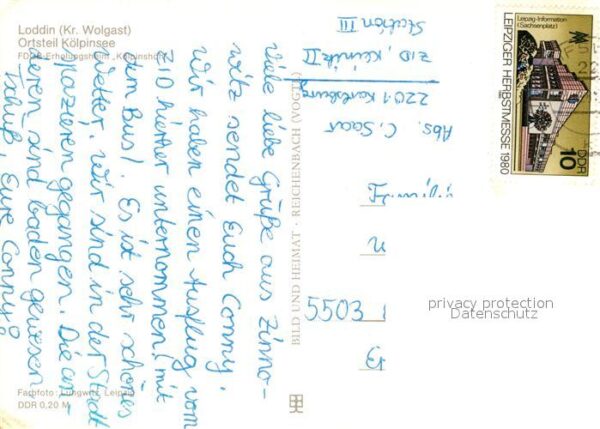 Loddin (Kr. Wolgast)
Ortsteil Kölpinsee
FDGB-Erholungsheim „Kölpinshöh"
Viele liebe Grüße aus Zinno-
witz sendet Euch Conny.
Wir haben einen Ausflug vom
ZID hierher unternommen (mit
dem Bus). Es ist sehr schönes
Wetter. Wir sind in der Stadt
spazieren gegangen. Die an-
deren sind baden gewesen
Tschüß, Eure Conny!
Farbfoto: Lungwitz, Leipzig
DDR 0,20 M
BILD UND HEIMAT · REICHENBACH (VOGTL)
Abs. C. Saar
2201 Karlsburg
ZID, Klinik II
Station III
5503
Leipzig-Information
(Sachsenplatz)
LEIPZIGER HERBSTMESSE 1980
DDR
10
privacy protection
Datenschutz